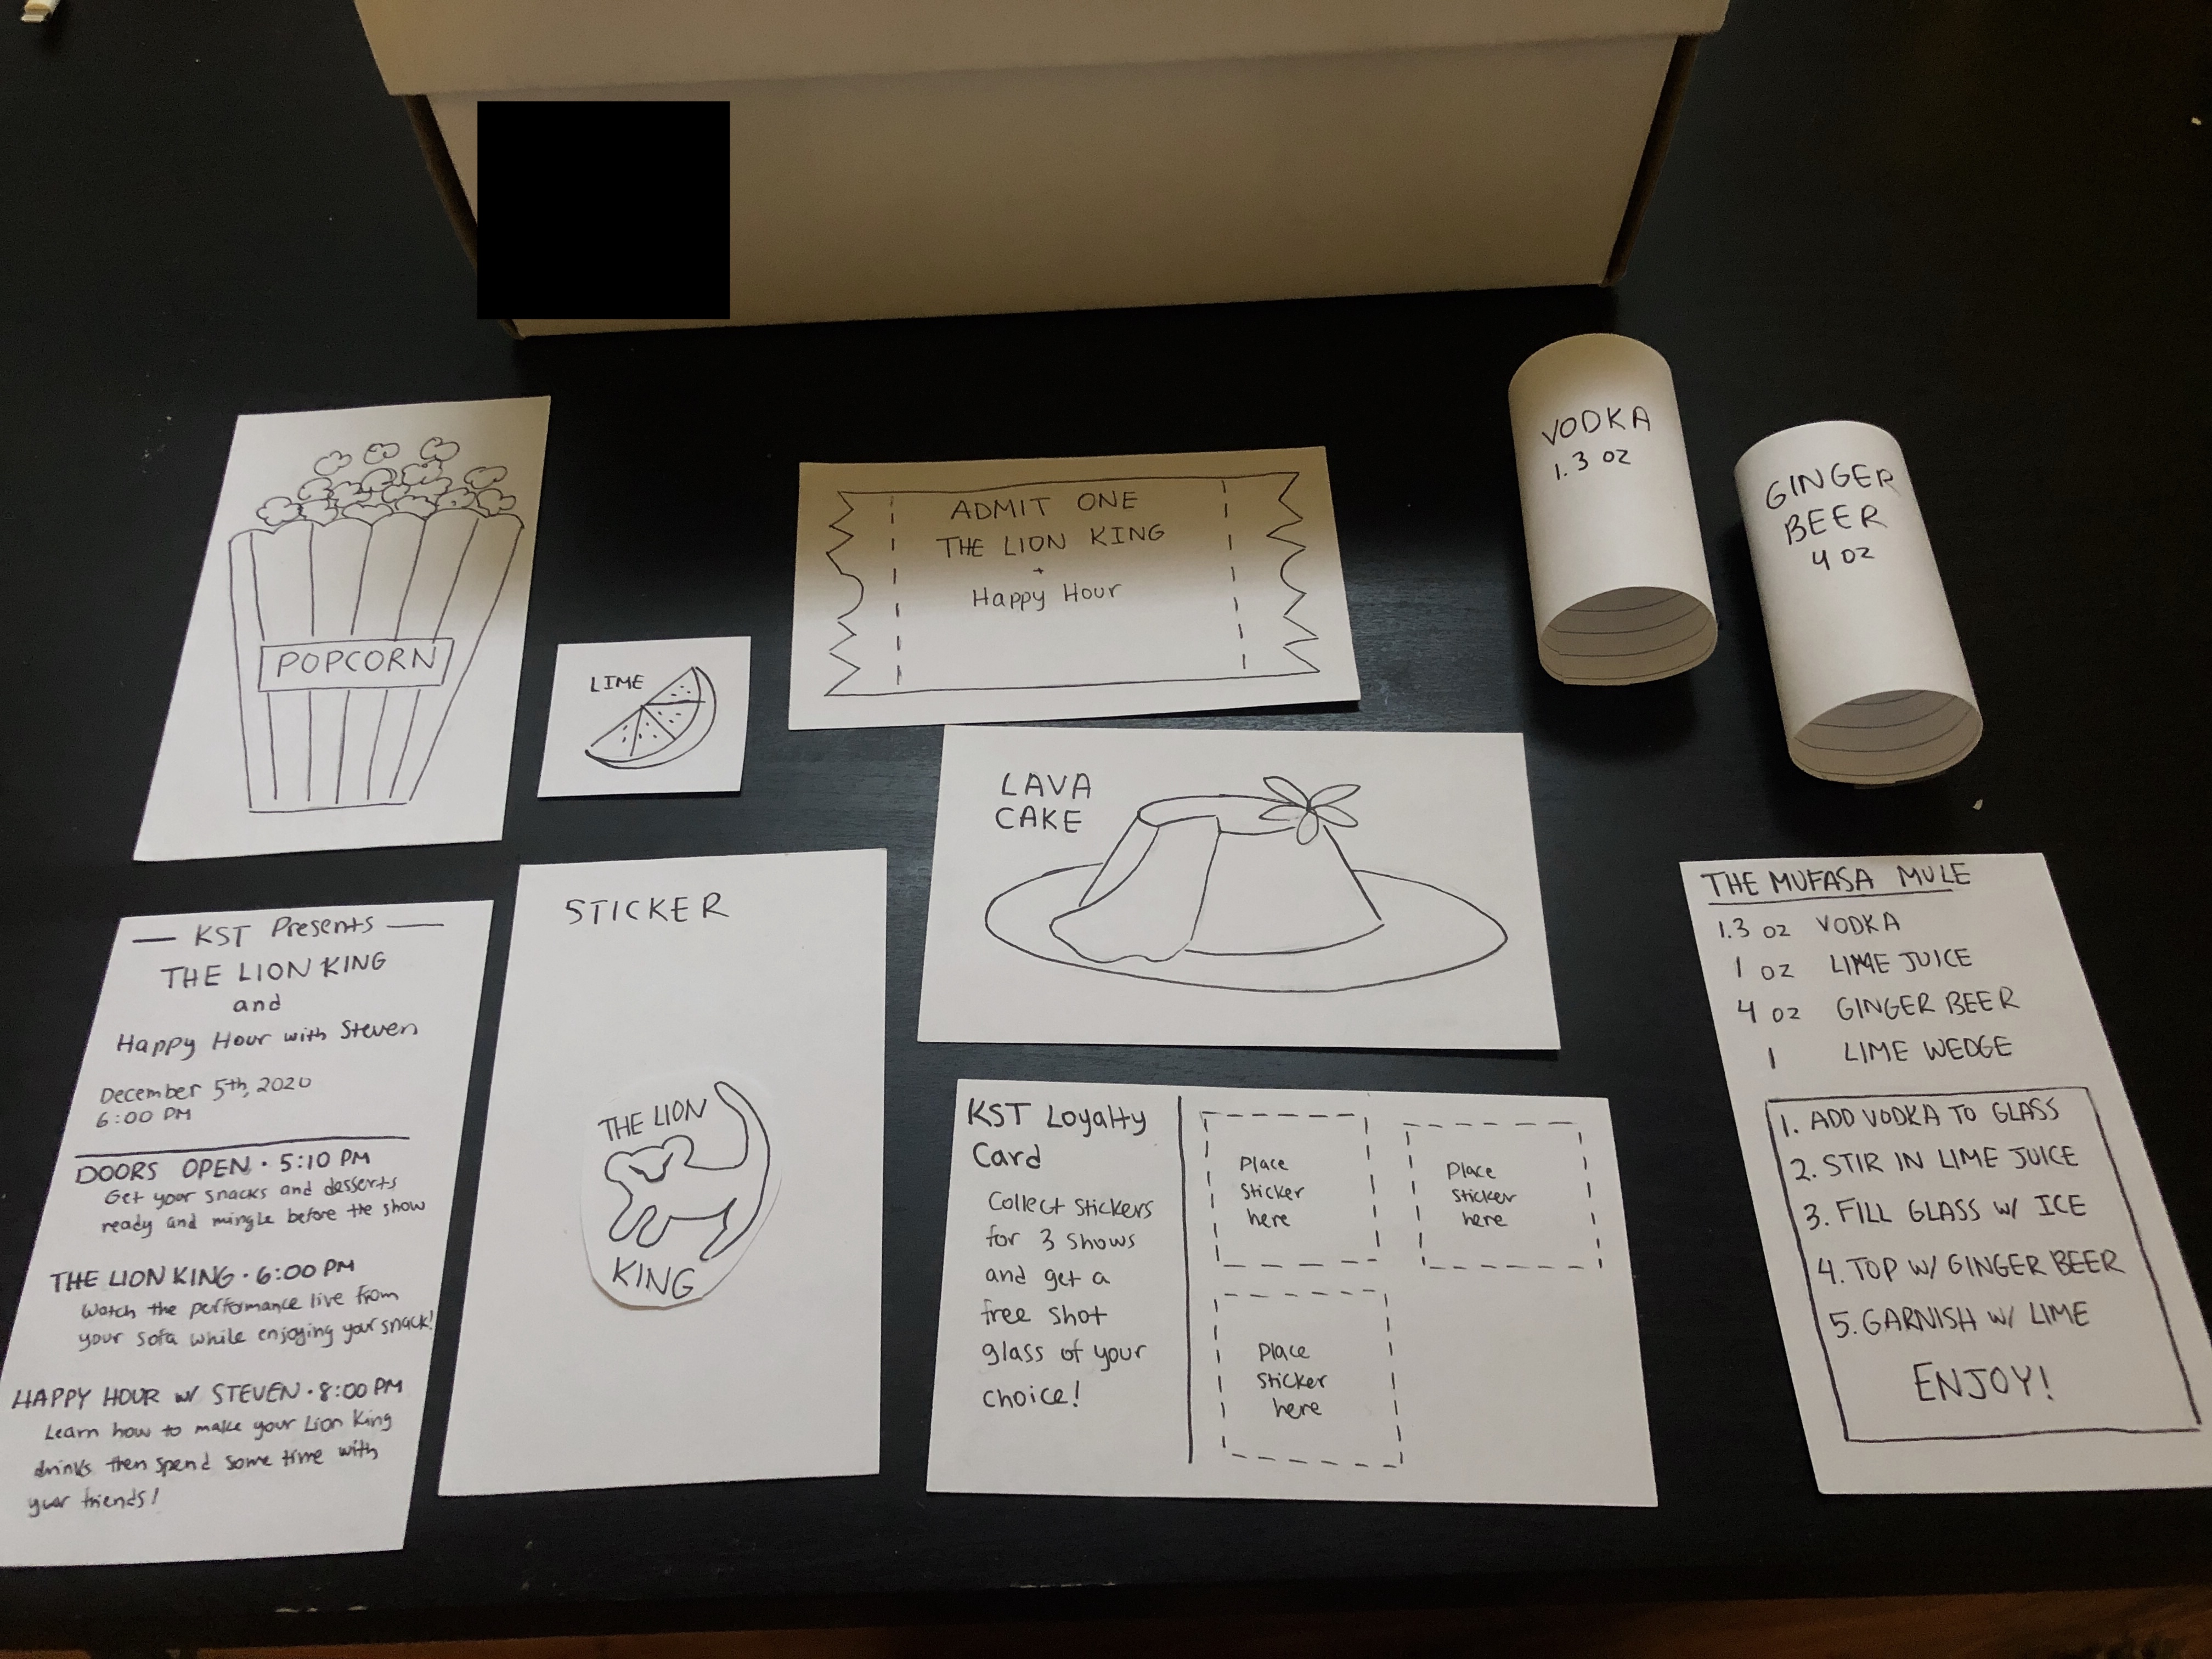 POPCORN
LIME
ADMIT ONE
THE LION KING
+
Happy Hour
VODKA
1.3 OZ
GINGER
BEER
4 OZ
LAVA
CAKE
— KST Presents —
THE LION KING
and
Happy Hour with Steven
December 5th, 2020
6:00 PM
DOORS OPEN · 5:10 PM
Get your snacks and desserts
ready and mingle before the show
THE LION KING · 6:00 PM
Watch the performance live from
your sofa while enjoying your snack!
HAPPY HOUR w/ STEVEN · 8:00 PM
Learn how to make your Lion King
drinks then spend some time with
your friends!
STICKER
THE LION
KING
KST Loyalty
Card
Collect stickers
for 3 shows
and get a
free shot
glass of your
choice!
Place
Sticker
here
Place
Sticker
here
Place
Sticker
here
THE MUFASA MULE
1.3 OZ VODKA
1 OZ LIME JUICE
4 OZ GINGER BEER
1 LIME WEDGE
1. ADD VODKA TO GLASS
2. STIR IN LIME JUICE
3. FILL GLASS W/ ICE
4. TOP W/ GINGER BEER
5. GARNISH W/ LIME
ENJOY!